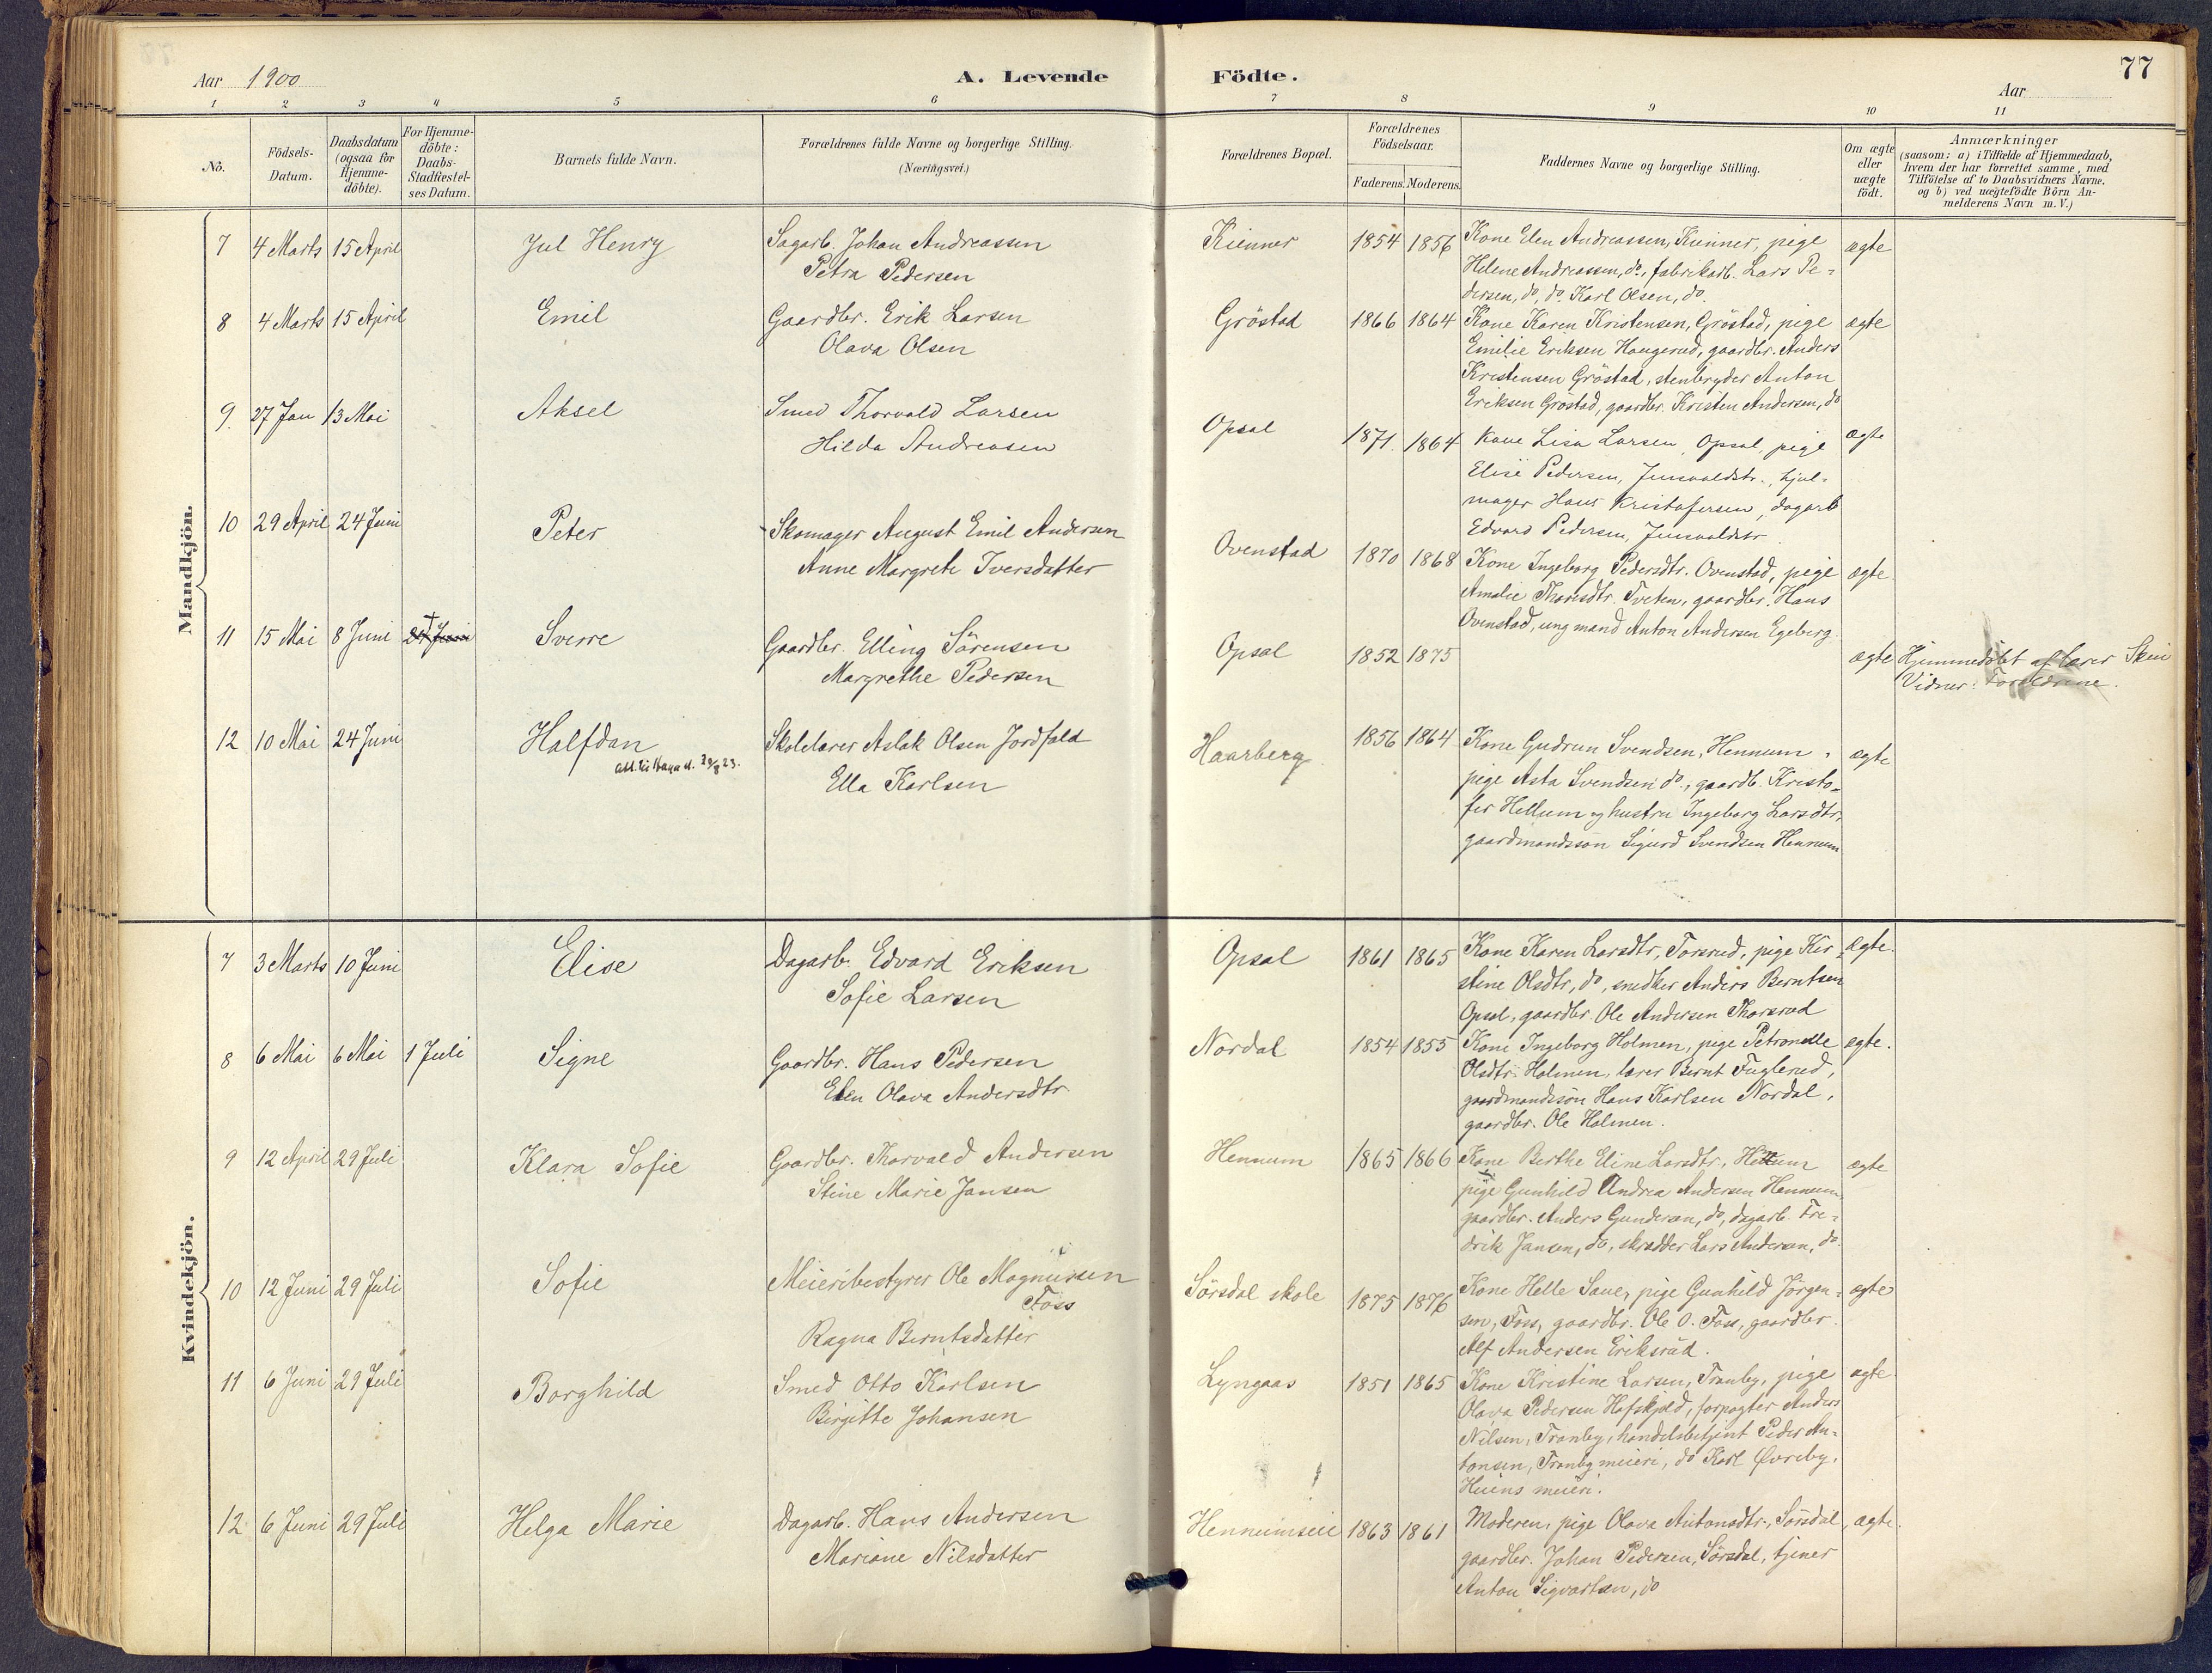 77
Aar 1900
A. Levende Födte.
Aar
1 2 3 4 5 6 7 8 9 10 11
No.
Födsels-Datum.
Daabsdatum (ogsaa for Hjemme-döbte).
For Hjemme-döbte: Daabs-Stadfæstel-ses Datum.
Barnets fulde Navn.
Forældrenes fulde Navne og borgerlige Stilling.
(Næringsvei.)
Forældrenes Bopæl.
Forældrenes Födselsaar.
Faderens. Moderens.
Faddernes Navne og borgerlige Stilling.
Om ægte eller uægte födt.
Anmærkninger
(saasom: a) i Tilfælde af Hjemmedaab,
hvem der har forrettet samme, med
Tilföielse af to Daabsvidners Navne.
og b) ved uægtefödte Börn An-
melderens Navn m. V.)
Mandkjön.
7 4 Marts 15 April Jul Henry
Sagarb. Johan Andreassen
Petra Pedersen
Kienner 1854 1856
Kone Elen Andreassen, Kienner, pige
Helene Andreassen, do, fabrikarb. Lars Pe-
dersen, do, do Karl Olsen, do.
ægte
8 4 Marts 15 April Emil
Gaardbr. Erik Larsen
Olava Olsen
Gröstad 1866 1864
Kone Karen Kristensen, Gröstad, pige
Emilie Eriksen Haugerud, gaardbr. Anders
Kristensen Gröstad, stenbryder Anton
Eriksen Gröstad, gaardbr. Kristen Andersen, do
ægte
9. 27 Jan 13 Mai Aksel
Smed Thorvald Larsen
Hilda Andreasen
Opsal 1871. 1864
Kone Lisa Larsen, Opsal, pige
Elise Pedersen, Jensvoldstr., hjul-
mager Hans Kristofersen, dagarb
Edvard Pedersen, Jensvoldstr.
ægte
10 29 April 24 Juni Peter
Skomager August Emil Andersen
Anne Margrete Iversdatter
Ovenstad 1870 1868
Kone Ingeborg Pedersdtr. Ovenstad, pige
Amalie Thorsdtr. Tveten, gaardbr. Hans
Ovenstad, ung mand Anton Andersen Egeberg.
ægte.
11 15 Mai 8 Juni † 24 Juni Sverre
Gaardbr. Elling Sörensen
Margrethe Pedersen
Opsal 1852 1875
ægte
Hjemmedöbt af lærer Skui
Vidner: Forældrene.
12 10 Mai 24 Juni Halfdan
att. 29/8 23.
Skolelærer Aslak Olsen Jordfald
Ella Karlsen
Haarberg 1856 1864
Kone Gudrun Svendsen, Hennum,
pige Asta Svendsen do, gaardb. Kristo-
fer Hellum og hustru Ingeborg Larsdtr,
gaardmandssön Sigurd Svendsen Hennum
ægte
Kvindekjön.
7 3 Marts 10 Juni Elise
Dagarb. Edvard Eriksen
Sofie Larsen
Opsal 1861 1865
Kone Karen Larsdtr, Torsrud, pige Kir-
stine Olsdtr, do, snedker Anders Berntsen
Opsal, gaardbr. Ole Andersen Thorsrud
Ægte.
8 6 Mai 6 Mai 1 Juli Signe
Gaardbr. Hans Pedersen
Elen Olava Andersdtr
Nordal 1854 1855
Kone Ingeborg Holmen, pige Petronelle
Olsdtr. Holmen, lærer Bernt Fuglerud,
gaardmandssön Hans Karlsen Nordal,
gaardbr. Ole Holmen.
ægte.
9 12 April 29 Juli Klara Sofie
Gaardbr. Thorvald Andersen
Stine Marie Jansen
Hennum 1865 1866
Kone Berthe Eline Larsdtr, Hellum
pige Gunhild Andrea Andersen Hennum
gaardbr. Anders Gundersen, do, dagarb. Fre-
drik Jansen, do, skrædder Lars Andersen, do
ægte
10 12 Juni 29 Juli Sofie
Meieribestyrer Ole Magnussen
Foss
Ragna Berntsdatter
Sörsdal skole 1875 1876
Kone Helle Sauer, pige Gunhild Jörgen-
sen, Foss, gaardbr. Ole O. Foss, gaardbr.
Alf Andersen Eriksrud.
ægte
11 6 Juni 29 Juli Borghild
Smed Otto Karlsen
Birgitte Johansen
Lyngaas 1851 1865
Kone Kristine Larsen, Tranby, pige
Olava Pedersen Hafskjold, forpagter Anders
Nilsen, Tranby, handelsbetjent Peder An-
tonsen, Tranby meieri, do Karl Øvreby,
Huens meieri.
ægte
12 6 Juni 29 Juli Helga Marie
Dagarb. Hans Andersen
Mariane Nilsdatter
Hennumseie 1863 1861
Moderen, pige Olava Antonsdtr., Sörsdal,
gaardbr. Johan Pedersen, Sörsdal, tjener
Anton Sigvartsen, do
ægte.